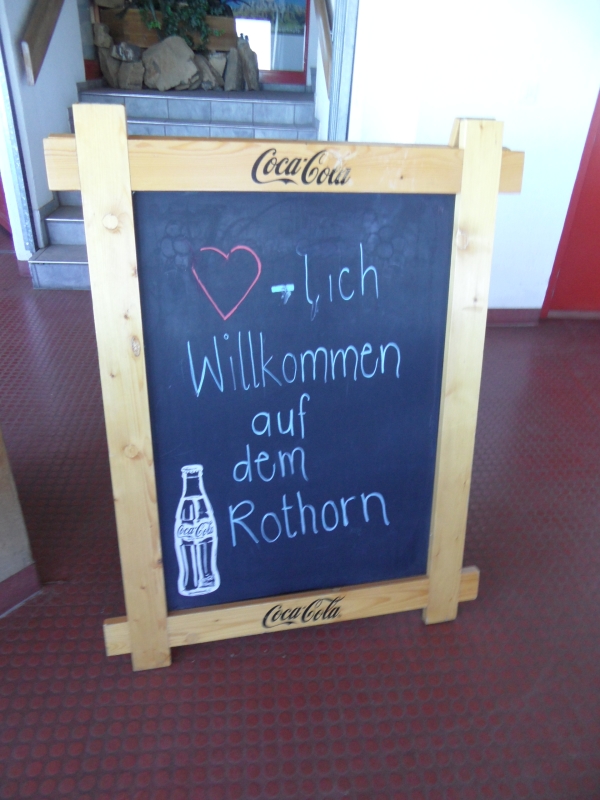 Coca-Cola
♥-lich
Willkommen
auf
dem
Rothorn
Coca-Cola
Coca-Cola